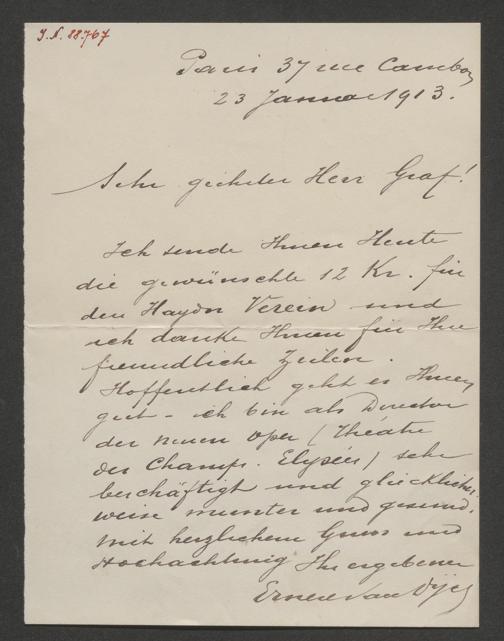 J.N. 88.767
Paris 37 rue Cambon
23 Januar 1913.
Sehr geehrter Herr Graf!
Ich sende Ihnen Heute
die gewünschte 12 Kr. für
den Haydn Verein und
ich danke Ihnen für Ihre
freundliche Zeilen.
Hoffentlich geht es Ihnen
gut - ich bin als Director
der neuen Oper (Théatre
des Champs. Elysées) sehr
beschäftigt und glücklicher
weise munter und gesund.
Mit herzlichem Gruss und
Hochachtung Ihr ergebener
Ernest Van Dyck